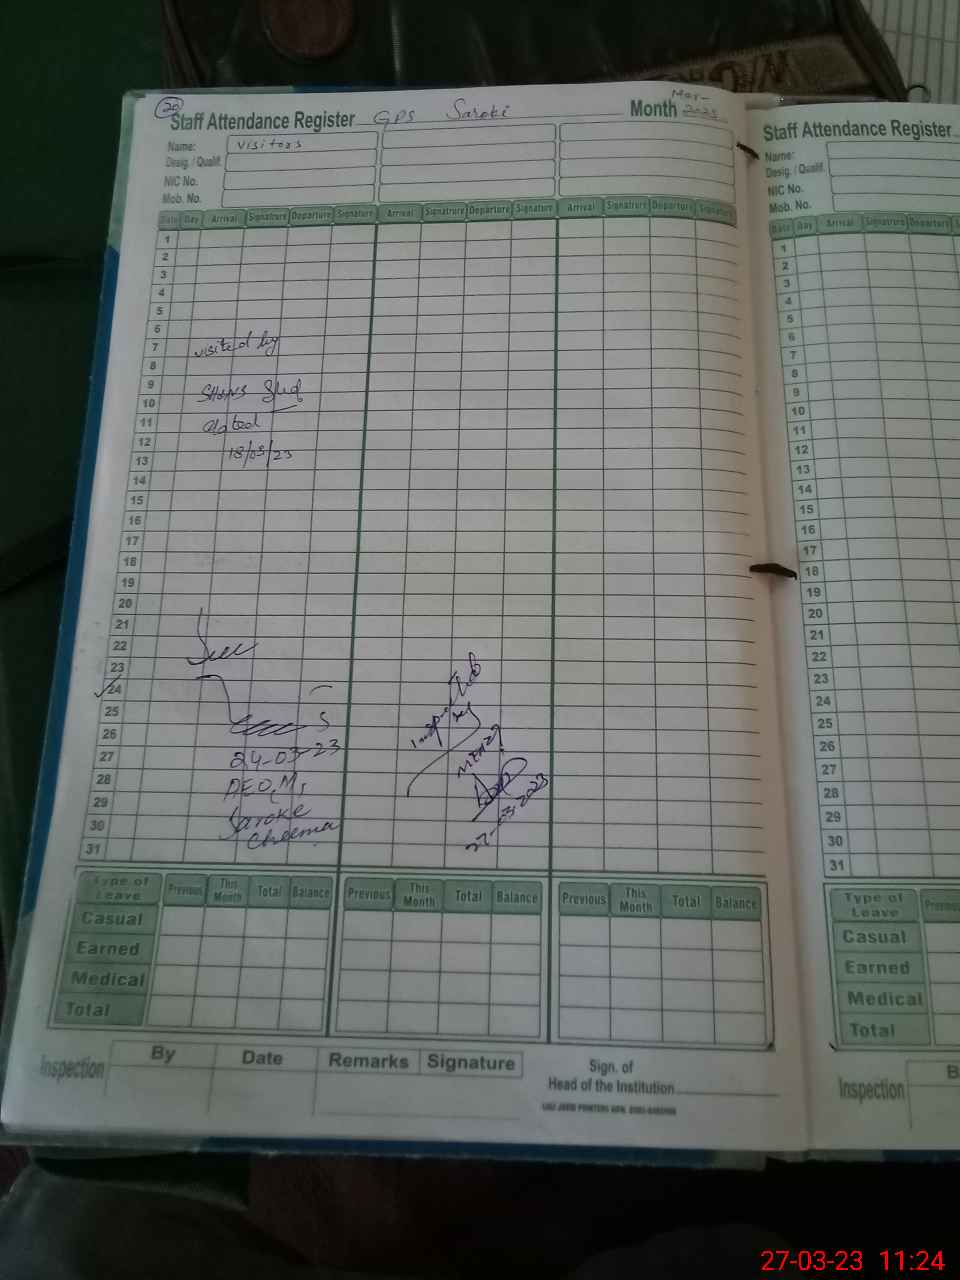 20
Staff Attendance Register GPS Saroki Month Mar-2023
Name: Visitors
Desig. / Qualif.
NIC No.
Mob. No.
Date Day Arrival Signatrure Departure Signature Arrival Signatrure Departure Signature Arrival Signatrure Departure Signature
1
2
3
4
5
6
7
visited by
8
9
10
11
dated
12
18/03/23
13
14
15
16
17
18
19
20
21
22
23
24
25
26
27
24-03-23
28
29
Saroke
30
Cheema
31
Inspected
by
27-03-2023
Type of Leave Previous This Month Total Balance Previous This Month Total Balance Previous This Month Total Balance
Casual
Earned
Medical
Total
Inspection By Date Remarks Signature
Sign. of
Head of the Institution
Staff Attendance Register
Name:
Desig. / Qualif.
NIC No.
Mob. No.
Date Day Arrival Signatrure Departure
1
2
3
4
5
6
7
8
9
10
11
12
13
14
15
16
17
18
19
20
21
22
23
24
25
26
27
28
29
30
31
Type of Leave
Casual
Earned
Medical
Total
Inspection
27-03-23 11:24